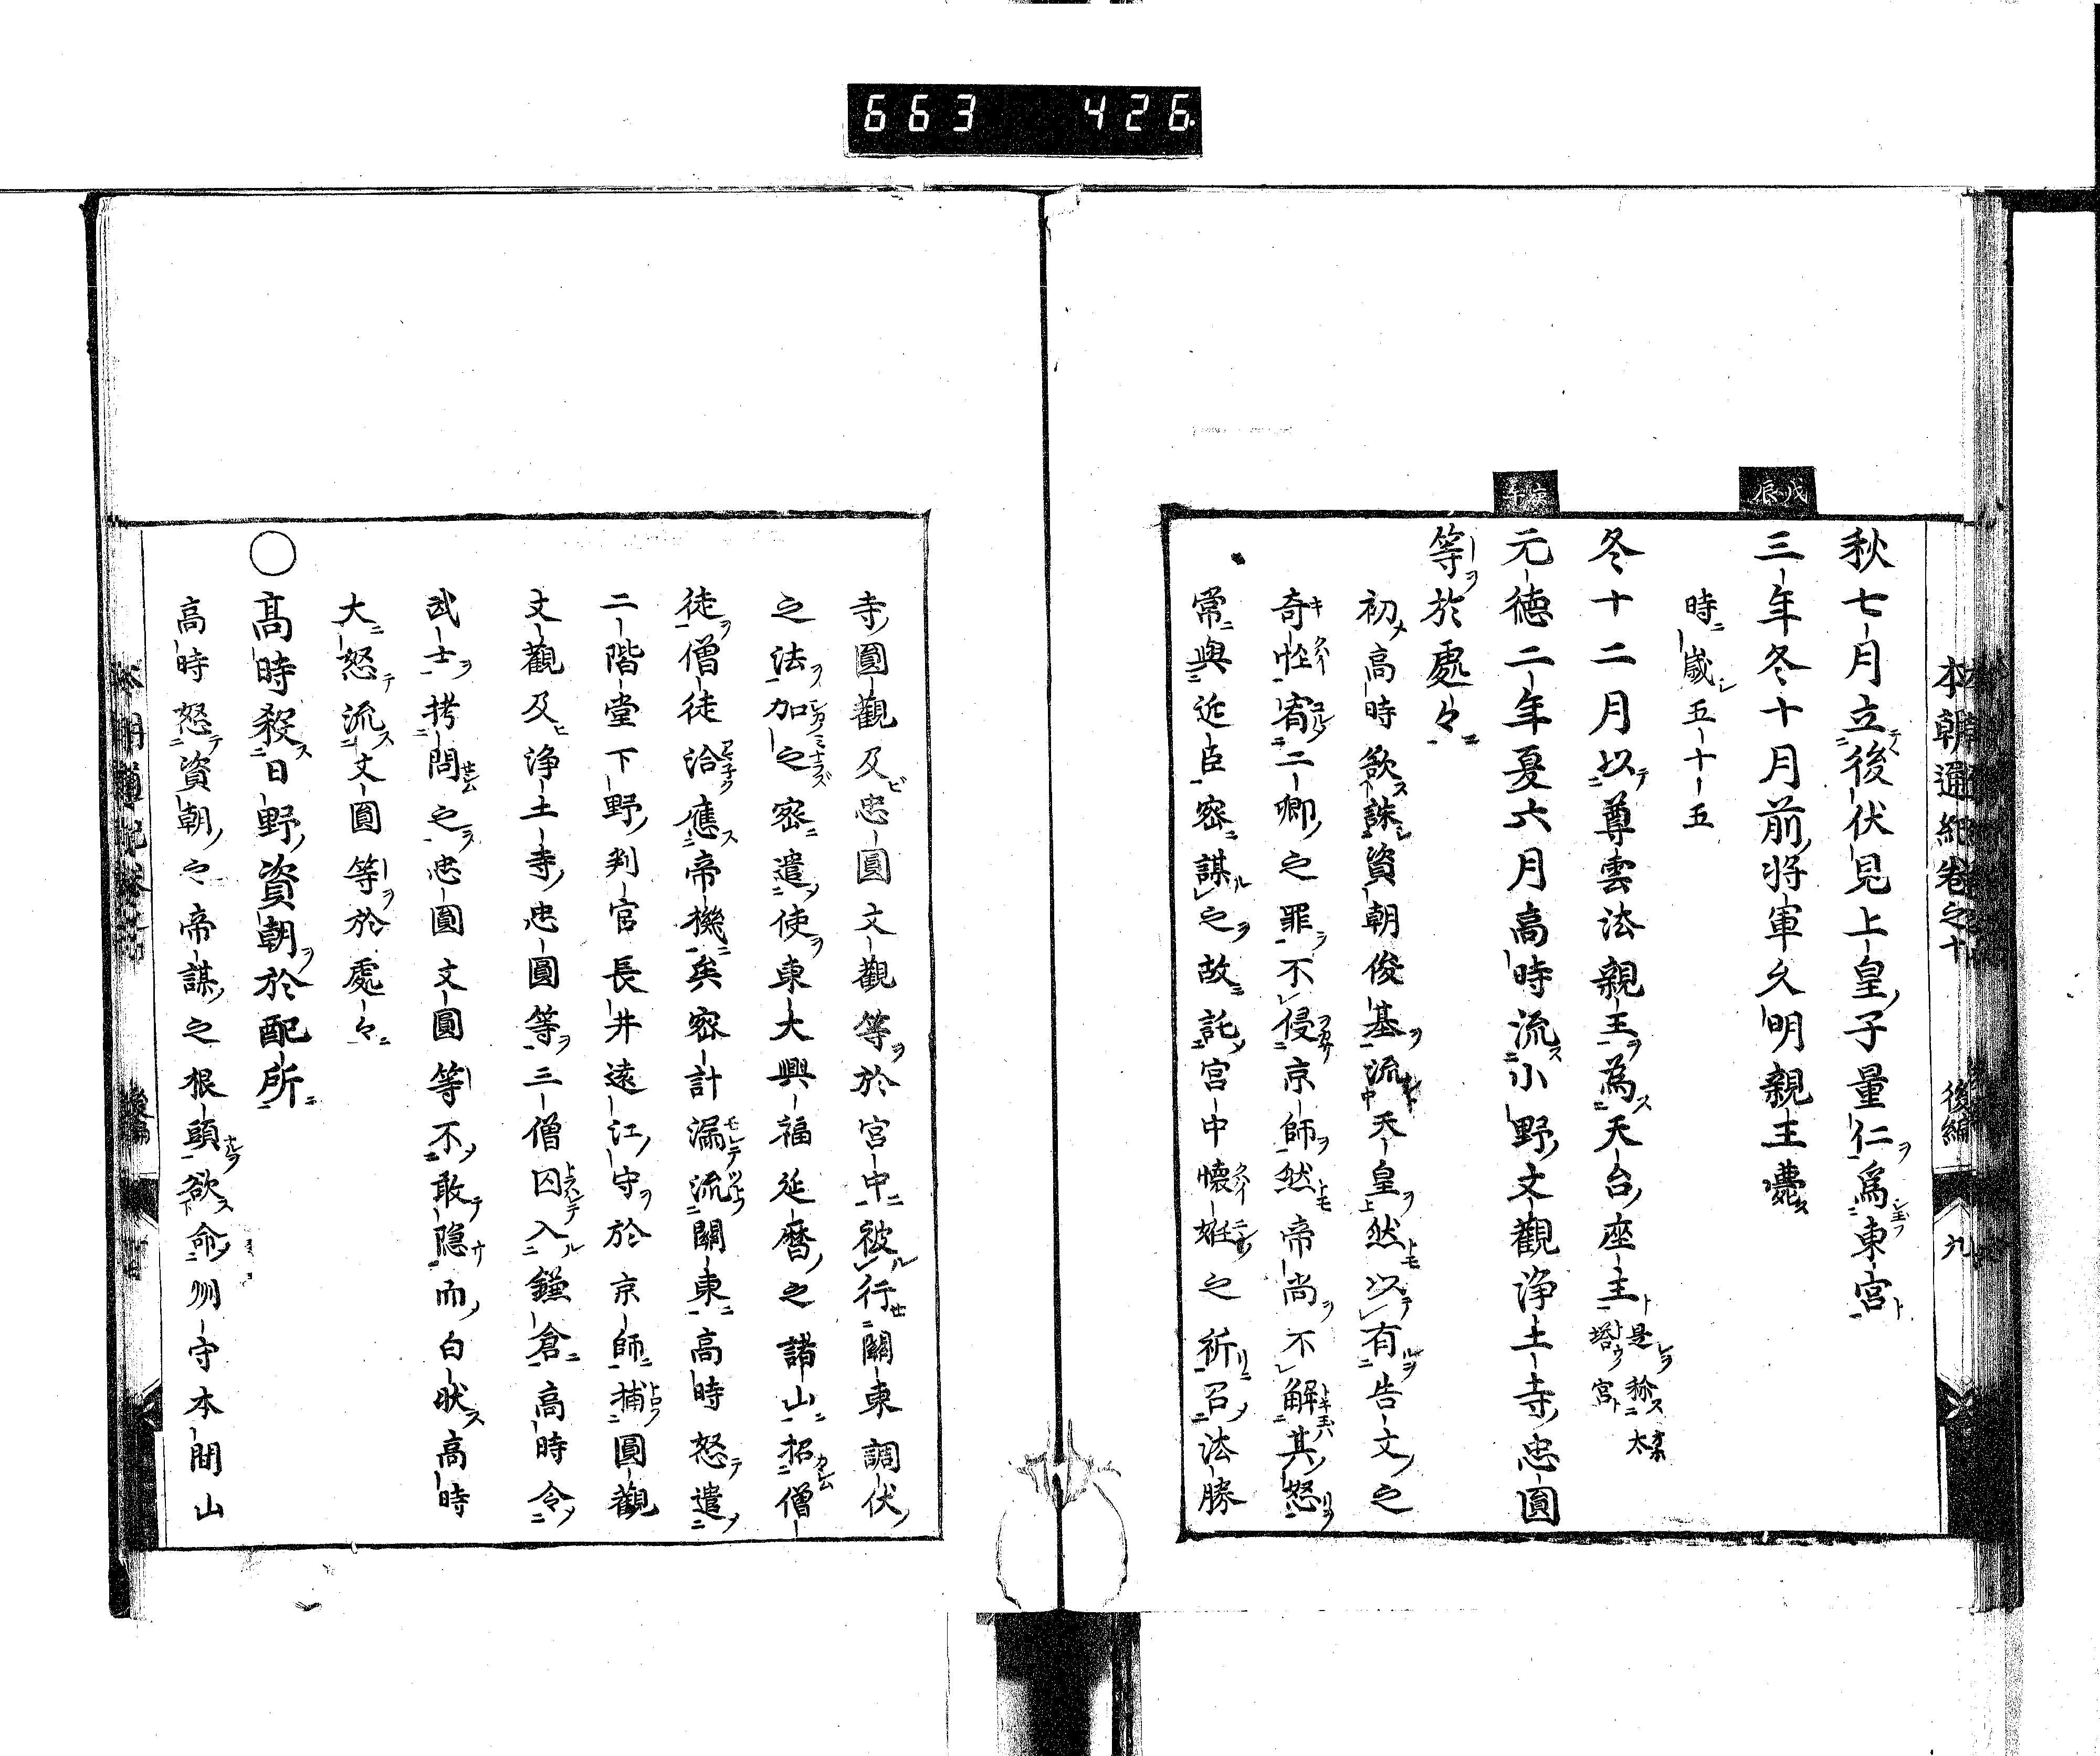 663 426
本朝通紀卷之十 後編 九
戊辰
庚午
秋七月立後伏見上皇子量仁爲東宮
三年冬十月前將軍久明親王薨
時歲五十五
冬十二月以尊雲法親王爲天台座主是稱大塔宮
元德二年夏六月高時流小野文觀淨土寺忠圓
等於處々
初高時欲誅資朝俊基流天皇然以有告文之
奇怪宥二卿之罪不侵京師然帝尚不解其怒
常與近臣密謀之故託宮中懷妊之祈召法勝
寺圓觀及忠圓文觀等於宮中被行關東調伏
之法加之密遣使東大興福延曆之諸山招僧
徒僧徒洽應帝機矣密計漏流關東高時怒遣
二階堂下野判官長井遠江守於京師捕圓觀
文觀及淨土寺忠圓等三僧囚入鎌倉高時令
武士拷問之忠圓文圓等不敢隱而白狀高時
大怒流文圓等於處々
○高時殺日野資朝於配所
高時怒資朝之帝謀之根頭欲命州守本間山